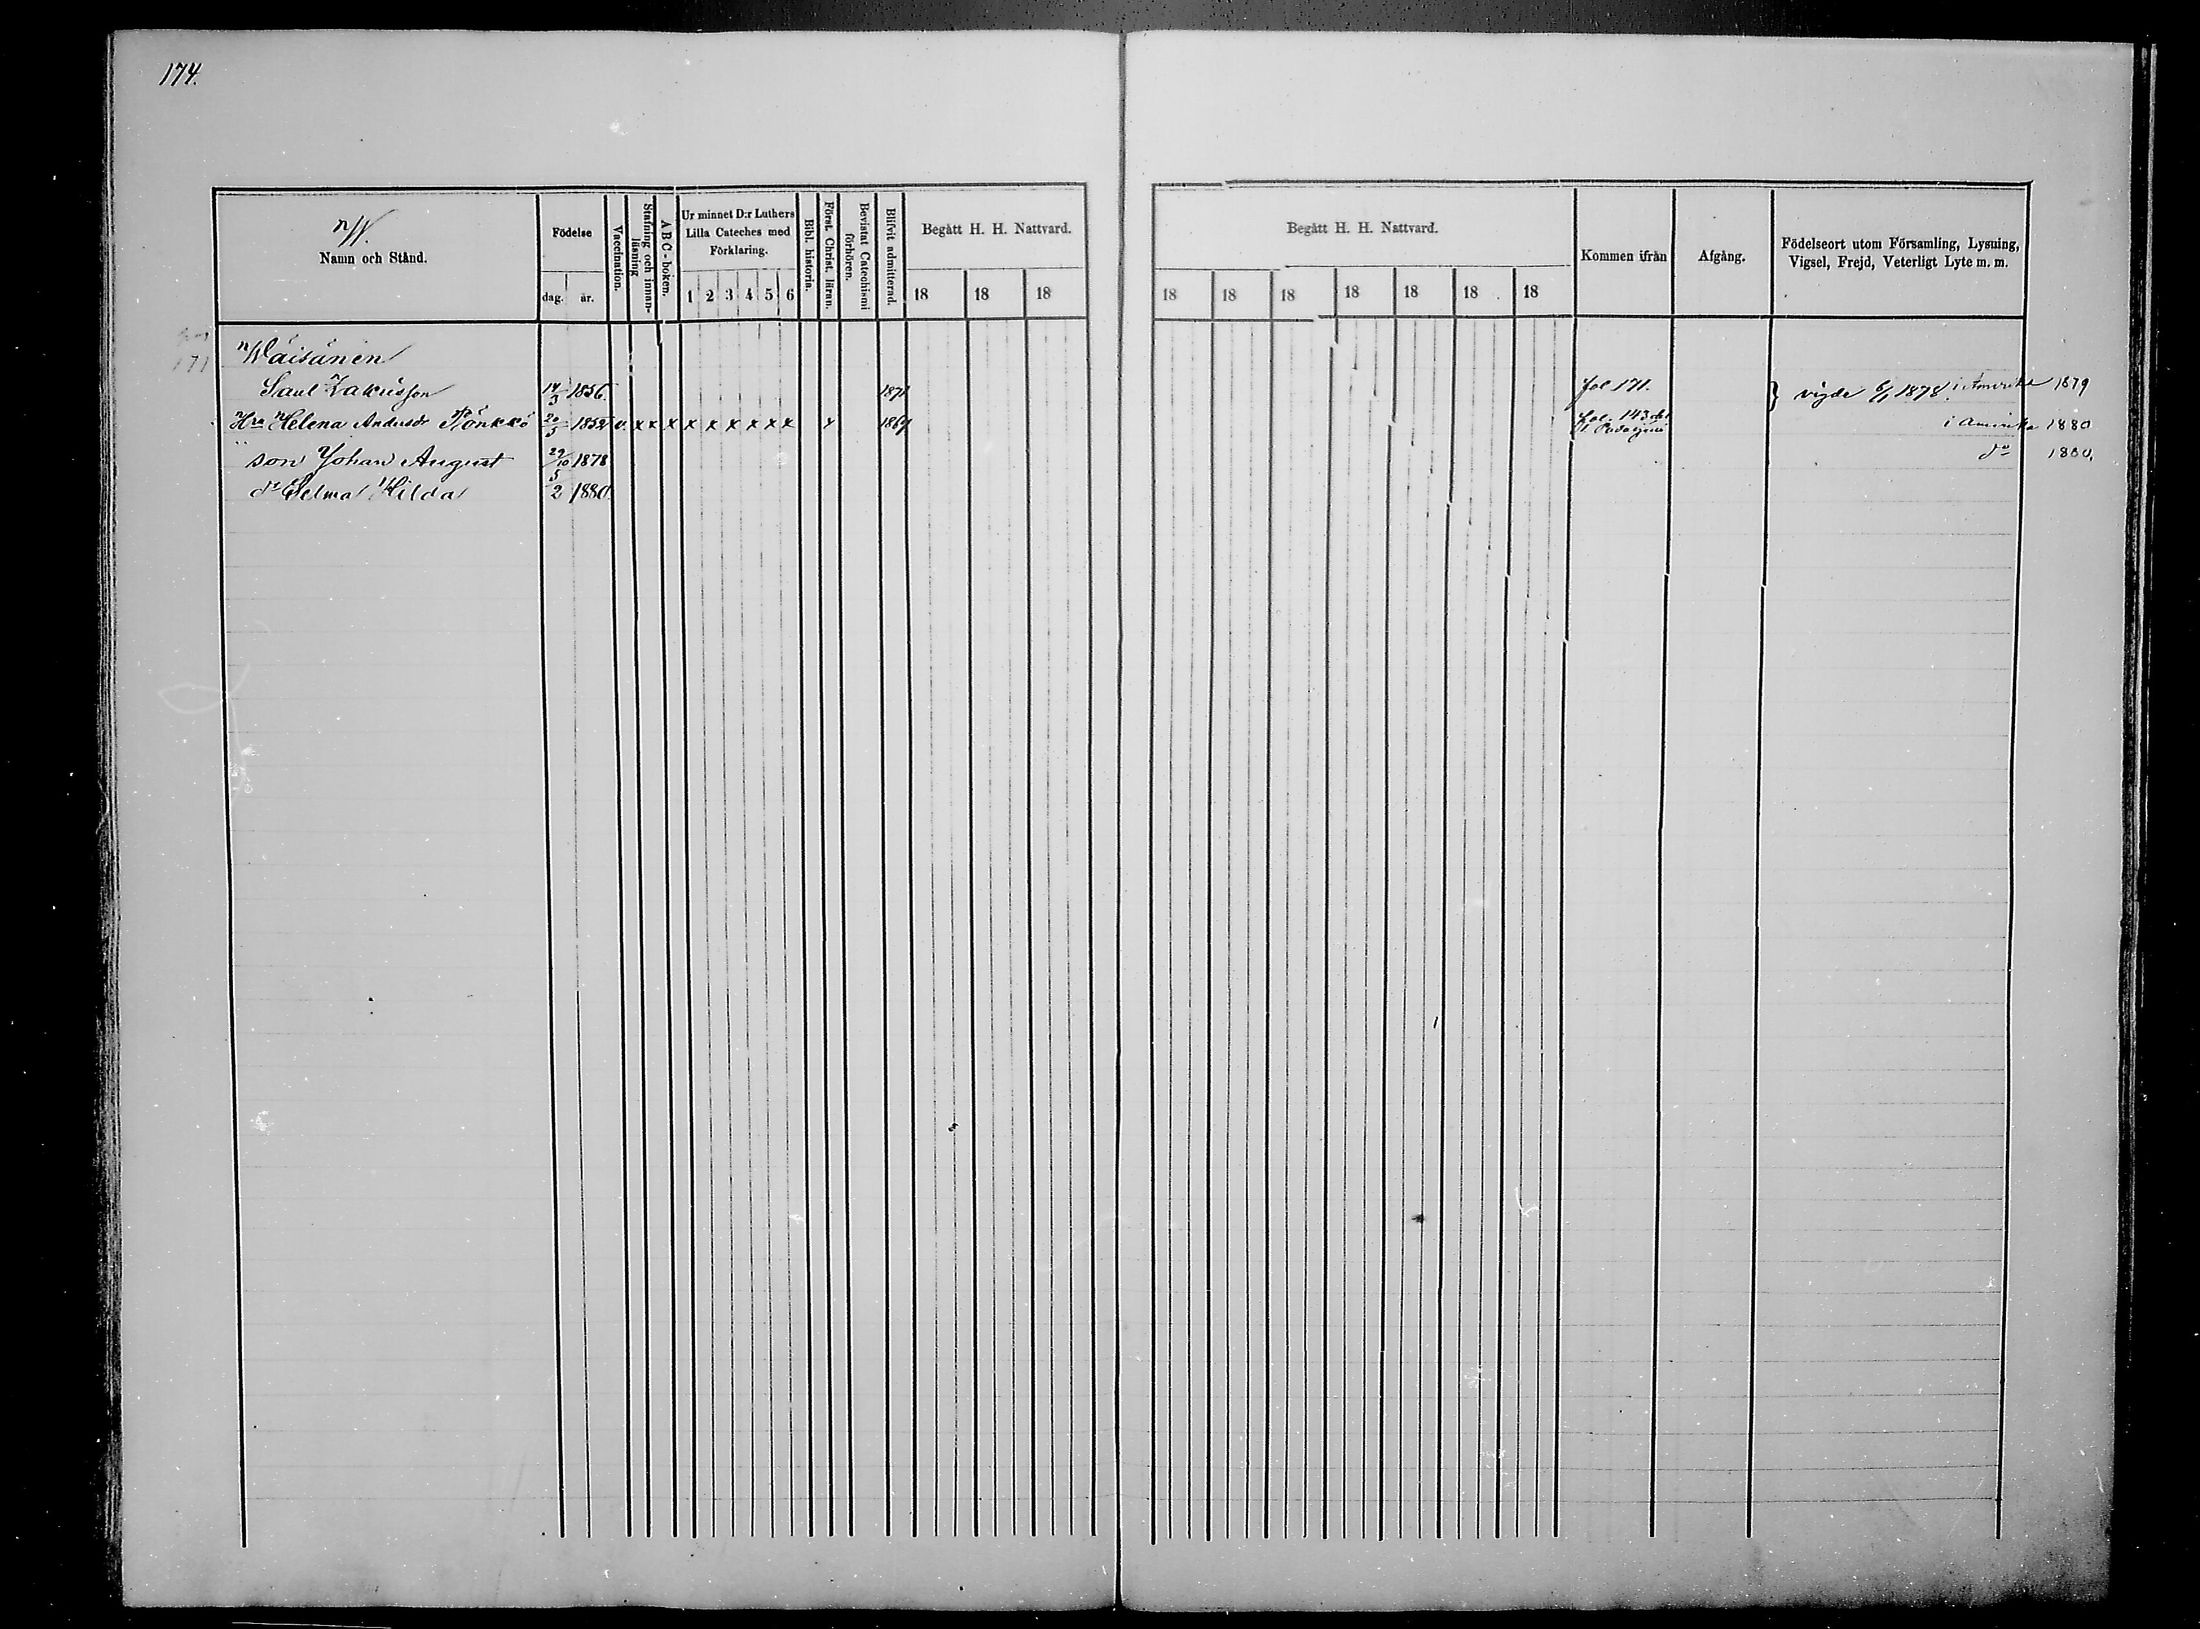 174.
W.
Namn och Stånd.
Födelse
dag. år.
Vaccination.
Stafning och innanläsning
A B C-boken.
Ur minnet D:r Luthers Lilla Cateches med Förklaring.
1 2 3 4 5 6
Bibl. historia.
Först. Christ. läran.
Bevistat Catechismi förhören.
Blifvit admitterad.
Begått H. H. Nattvard.
18 18 18
Begått H. H. Nattvard.
18 18 18 18 18 18 18
Kommen ifrån
Afgång.
Födelseort utom Församling, Lysning, Vigsel, Frejd, Veterligt Lyte m. m.
171
Wäisänen
Saul Zakrisson 14/3 1856. 1871 fol 171. } vigde 6/1 1878. i Amerika 1879
Hru Helena Andersdr Pönkkö 20/5 1852 v. x x x x x x x x x x 1869 fol. 143 i Amerika 1880
son Johan August 29/10 1878 do 1880.
dr Selma Hilda 5/2 1880